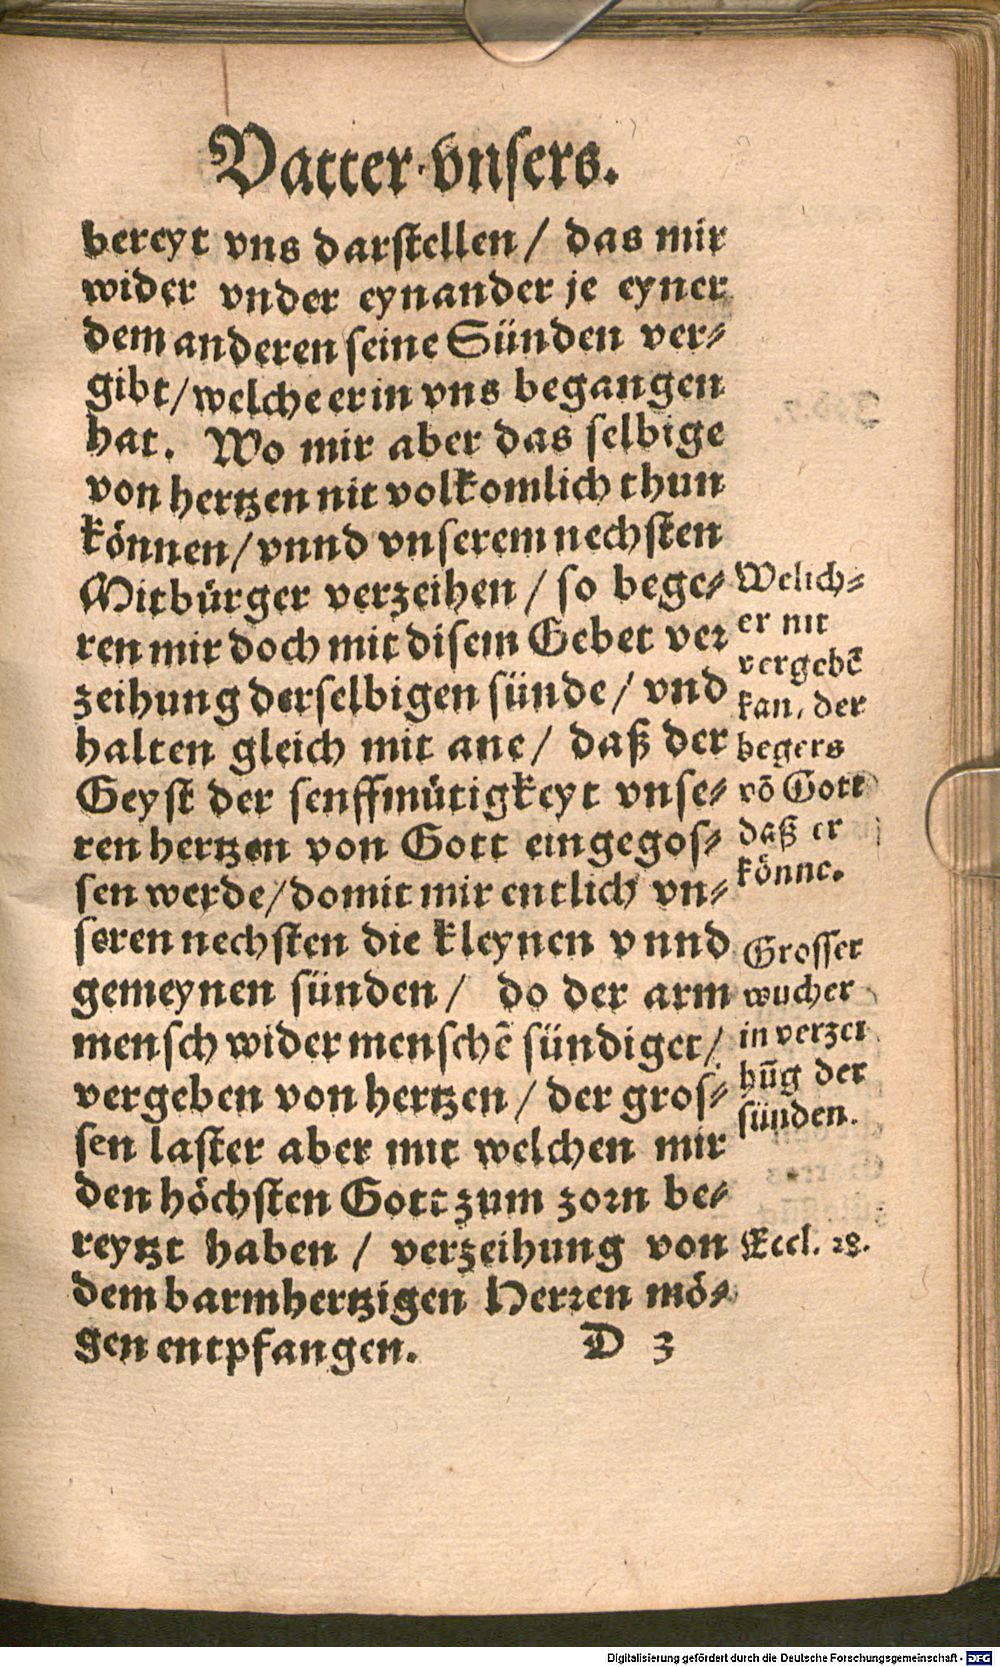 Vatter vnsers.
bereyt vns darstellen / das mir
wider vnder eynander je eyner
dem anderen seine Sünden ver⸗
gibt / welche er in vns begangen
hat. Wo mir aber das selbige
von hertzen nit volkomlich thun
können / vnnd vnserem nechsten
Mitbürger verzeihen / so bege⸗
ren mir doch mit disem Gebet ver
zeihung derselbigen sünde / vnd
halten gleich mit ane / daß der
Geyst der senffmütigkeyt vnse⸗
ren hertzen von Gott eingegos⸗
sen werde / domit mir entlich vn⸗
seren nechsten die kleynen vnnd
gemeynen sünden / do der arm
mensch wider menschē sündiget /
vergeben von hertzen / der gros⸗
sen laster aber mit welchen mir
den höchsten Gott zum zorn be⸗
reytzt haben / verzeihung von
dem barmhertzigen Herren mö⸗
gen entpfangen.
D 3
Welich⸗
er nit
vergebē
kan, der
begers
vō Gott
daß er
könne.
Grosser
wucher
in verzei
hūg der
sünden.
Eccl. 28.
Digitalisierung gefördert durch die Deutsche Forschungsgemeinschaft - DFG